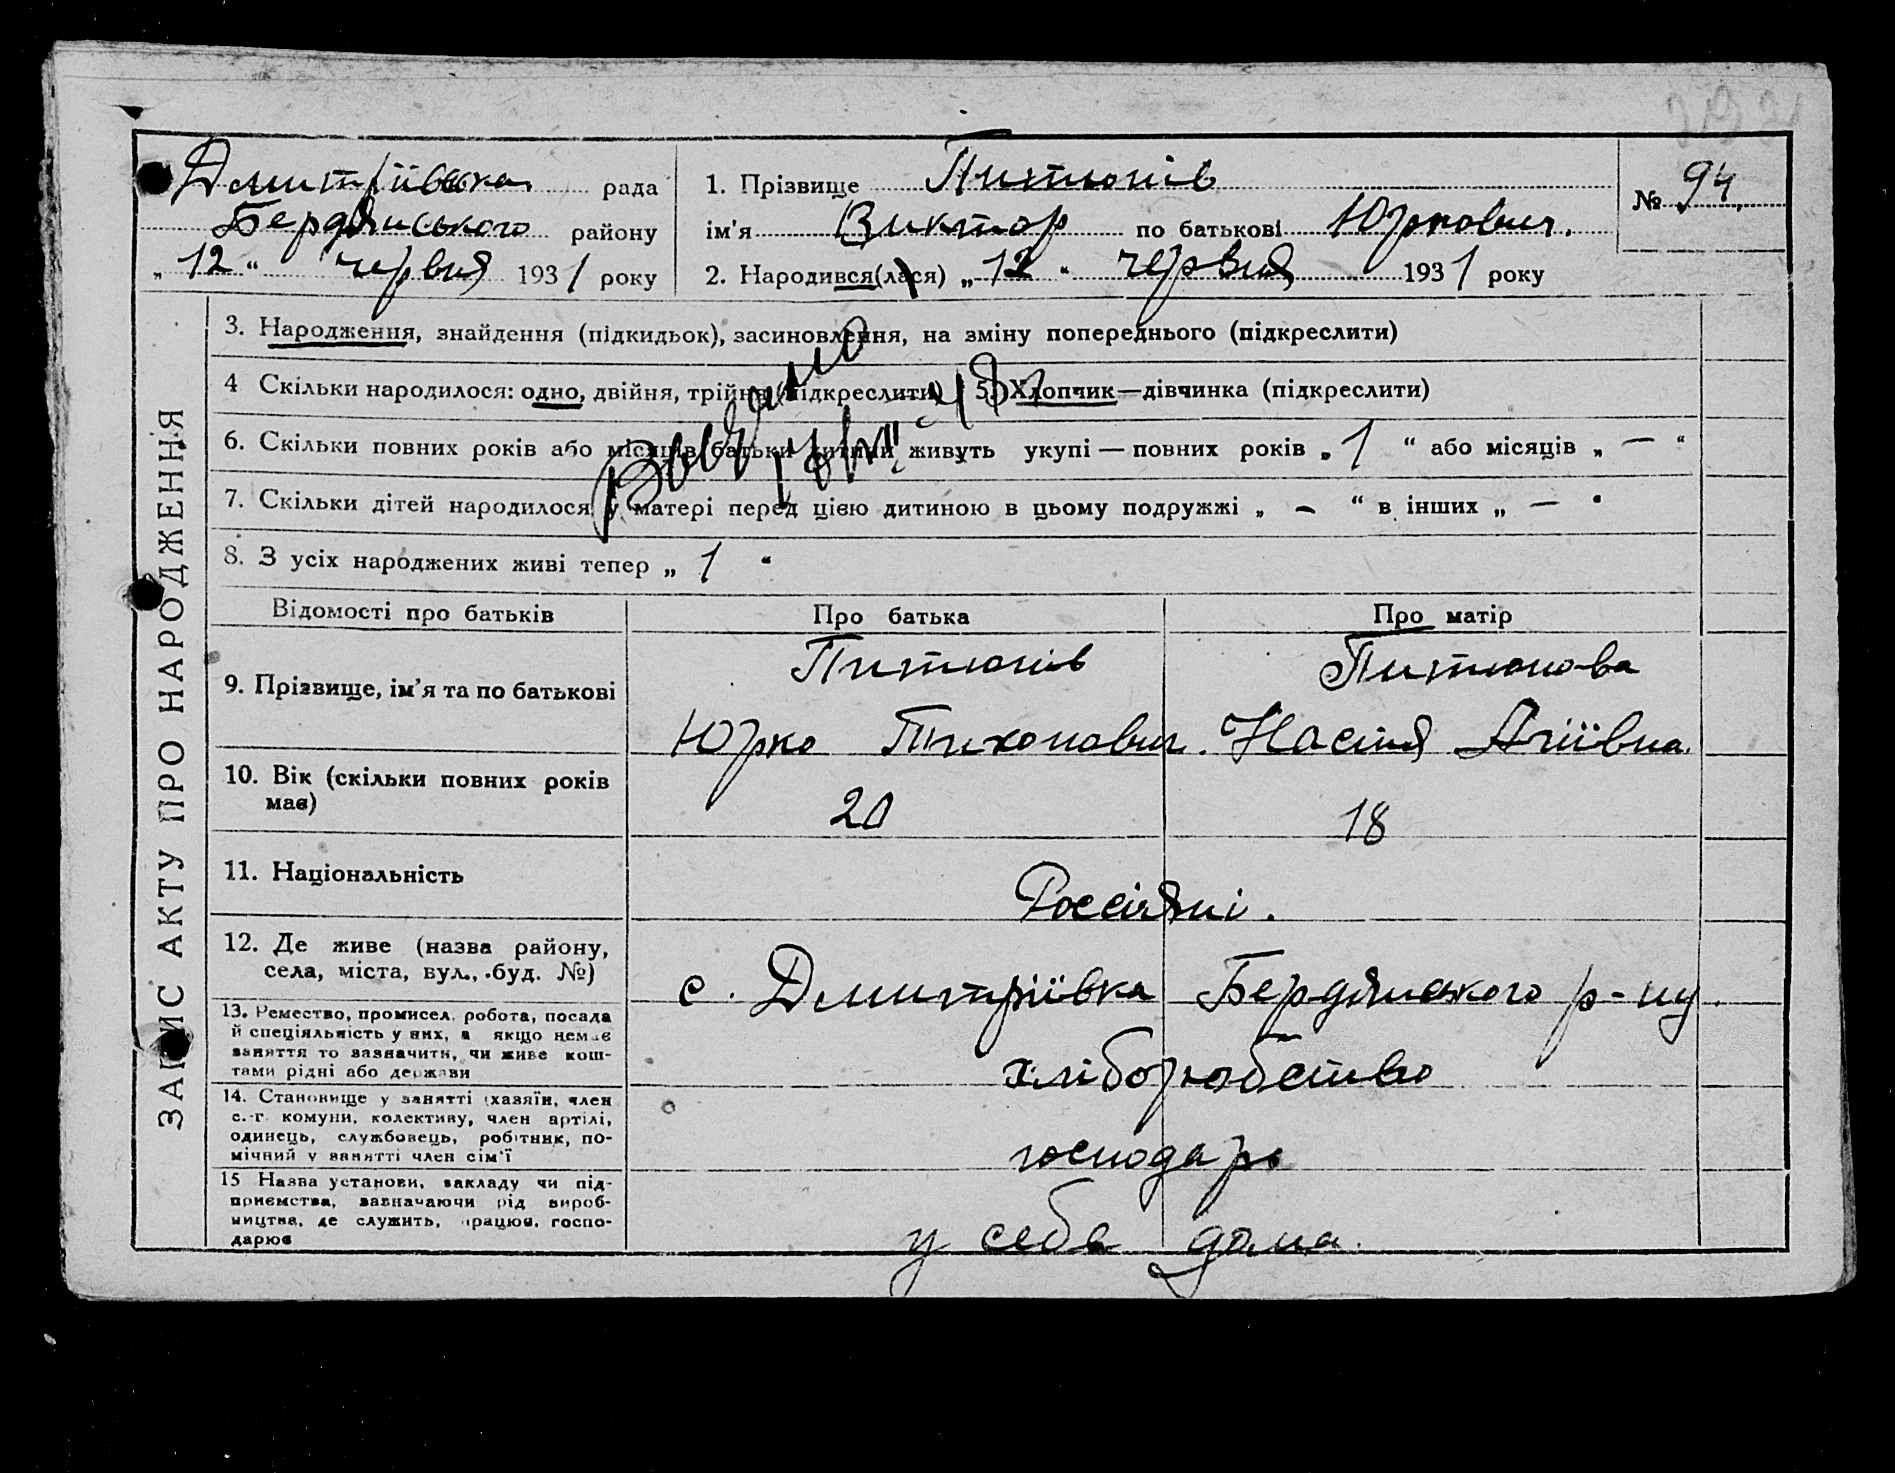 Дмитріївська рада
Бердянського району
„ 12 “ червня 1931 року
1. Прізвище Питюнів
ім’я Виктор по батькові Юркович.
2. Народився(лася) „ 12 “ червня 1931 року
№ 94
ЗАПИС АКТУ ПРО НАРОДЖЕННЯ
3. Народження, знайдення (підкидьок), засиновлення, на зміну попереднього (підкреслити)
4 Скільки народилося: одно, двійня, трійня (підкреслити) 5. Хлопчик—дівчинка (підкреслити)
6. Скільки повних років або місяців батьки дитини живуть укупі — повних років „ 1 “ або місяців „ — “
7. Скільки дітей народилося у матері перед цією дитиною в цьому подружжі „ – “ в інших „ — “
8. З усіх народжених живі тепер „ 1 “
Відомості про батьків Про батька Про матір
9. Прізвище, ім’я та по батькові
Питюнів
Юрко Тихонович.
Питюнова
Настя
10. Вік (скільки повних років має)
20
18
11. Національність
Россіяні.
12. Де живе (назва району,
села, міста, вул., буд. №)
с. Дмитріївка Бердянського р-ну.
13. Ремество, промисел, робота, посада
й спеціяльність у них, а якщо немає
заняття то зазначити, чи живе кош-
тами рідні або держави
хліборобство
14. Становище у занятті (хазяїн, член
с.-г. комуни, колективу, член артілі,
одинець, службовець, робітник, по-
мічний у занятті член сім’ї
господарь
15 Назва установи, закладу чи під-
приємства, зазначаючи рід вироб-
ництва, де служить, працює, госпо-
дарює
у себе дома.